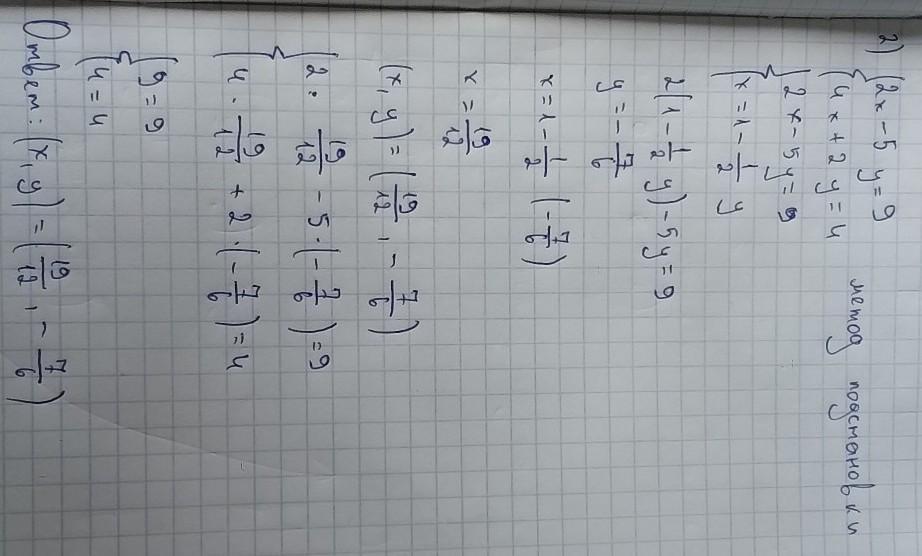 2) { 2x - 5y = 9
4x + 2y = 4 метод подстановки
{ 2x - 5y = 9
x = 1 - 1/2 y
2(1 - 1/2 y) - 5y = 9
y = - 7/6
x = 1 - 1/2 (- 7/6)
x = 19/12
(x, y) = (19/12, - 7/6)
{ 2 · 19/12 - 5 · (- 7/6) = 9
4 · 19/12 + 2 · (- 7/6) = 4
{ 9 = 9
4 = 4
Ответ: (x, y) = (19/12, - 7/6)